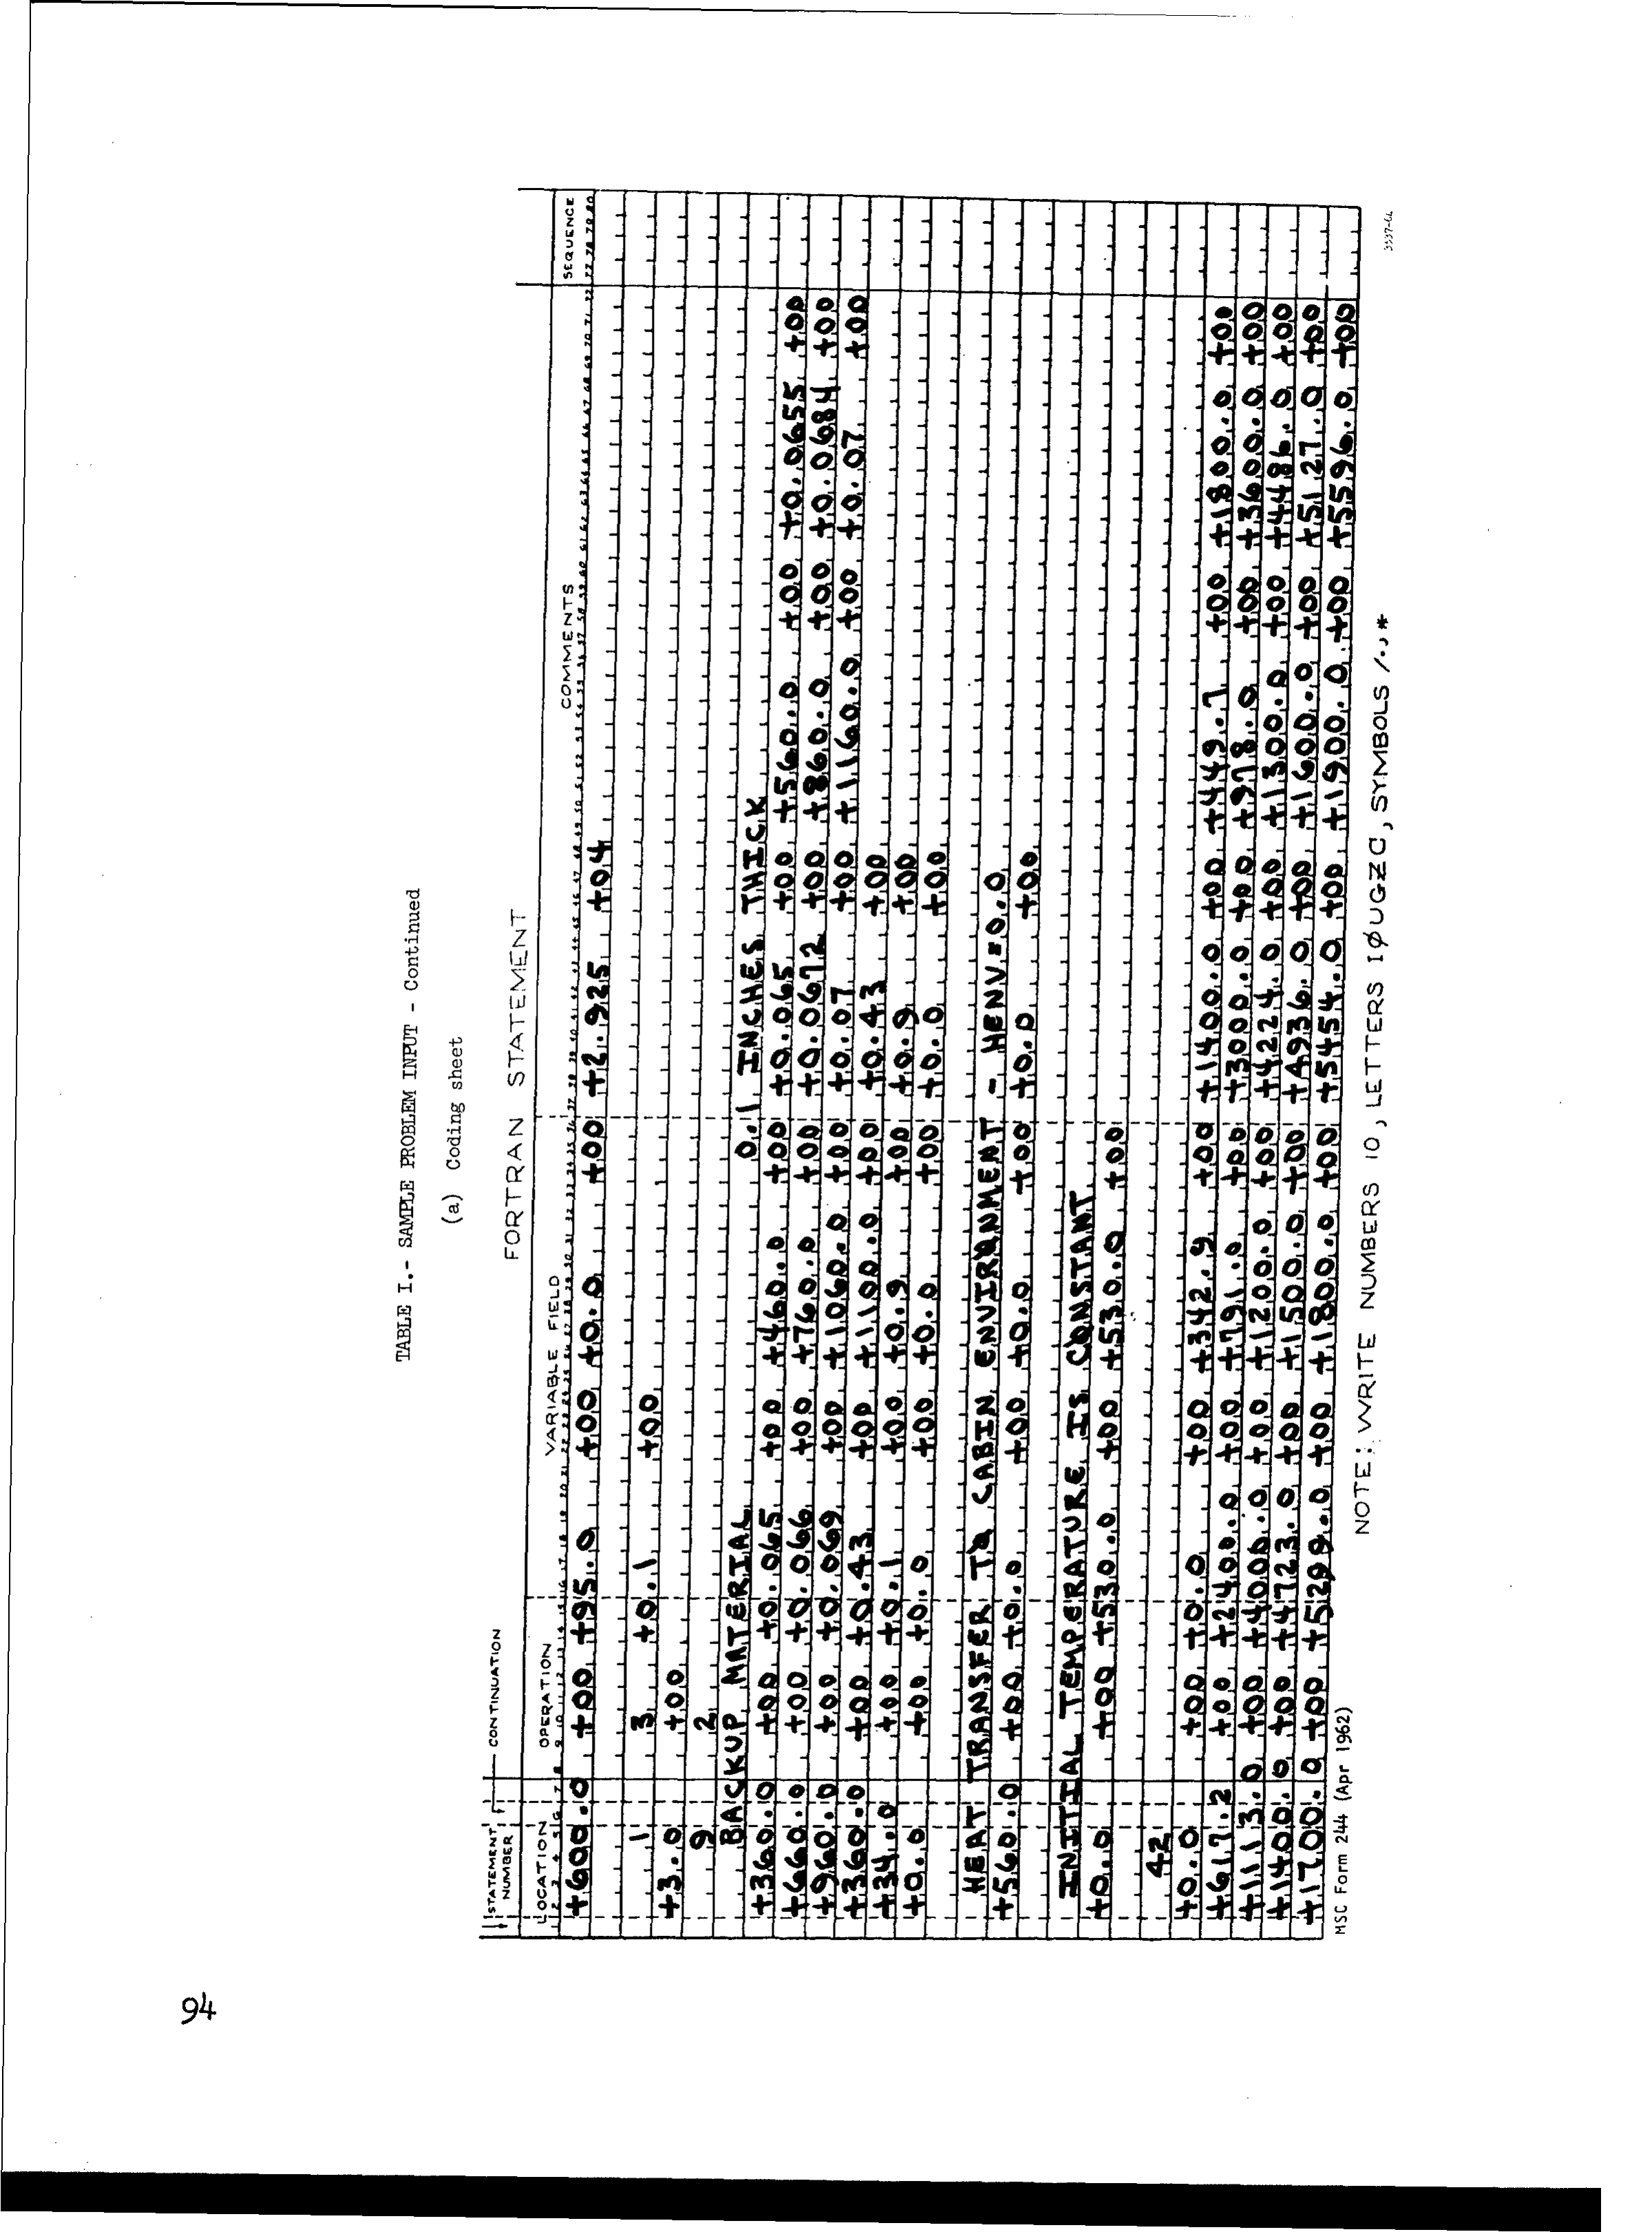 TABLE I.- SAMPLE PROBLEM INPUT - Continued
(a) Coding sheet
STATEMENT NUMBER CONTINUATION
FORTRAN STATEMENT
LOCATION OPERATION VARIABLE FIELD COMMENTS SEQUENCE
+600.0 +00 +95.0 +00 +0.0 +00 +2.925 +04
1 3 +0.1 +00
+3.0 +00
9 2
BACKUP MATERIAL 0.1 INCHES THICK
+360.0 +00 +0.065 +00 +460.0 +00 +0.065 +00 +560.0 +00 +0.0655 +00
+660.0 +00 +0.066 +00 +760.0 +00 +0.0672 +00 +860.0 +00 +0.0684 +00
+960.0 +00 +0.069 +00 +1060.0 +00 +0.07 +00 +1160.0 +00 +0.07 +00
+360.0 +00 +0.43 +00 +1100.0 +00 +0.43 +00
+34.0 +00 +0.1 +00 +0.9 +00 +0.9 +00
+0.0 +00 +0.0 +00 +0.0 +00 +0.0 +00
HEAT TRANSFER TO CABIN ENVIRONMENT - HENV=0.0
+560.0 +00 +0.0 +00 +0.0 +00 +0.0 +00
INITIAL TEMPERATURE IS CONSTANT
+0.0 +00 +530.0 +00 +530.0 +00
42
+0.0 +00 +0.0 +00 +342.9 +00 +1400.0 +00 +449.7 +00 +1800.0 +00
+617.2 +00 +2400.0 +00 +791.0 +00 +3000.0 +00 +978.0 +00 +3600.0 +00
+1113.0 +00 +4000.0 +00 +1200.0 +00 +4224.0 +00 +1300.0 +00 +4486.0 +00
+1400.0 +00 +4723.0 +00 +1500.0 +00 +4936.0 +00 +1600.0 +00 +5127.0 +00
+1700.0 +00 +5299.0 +00 +1800.0 +00 +5454.0 +00 +1900.0 +00 +5596.0 +00
MSC Form 244 (Apr 1962)
NOTE: WRITE NUMBERS 10, LETTERS IØUGZC, SYMBOLS /.,*
94